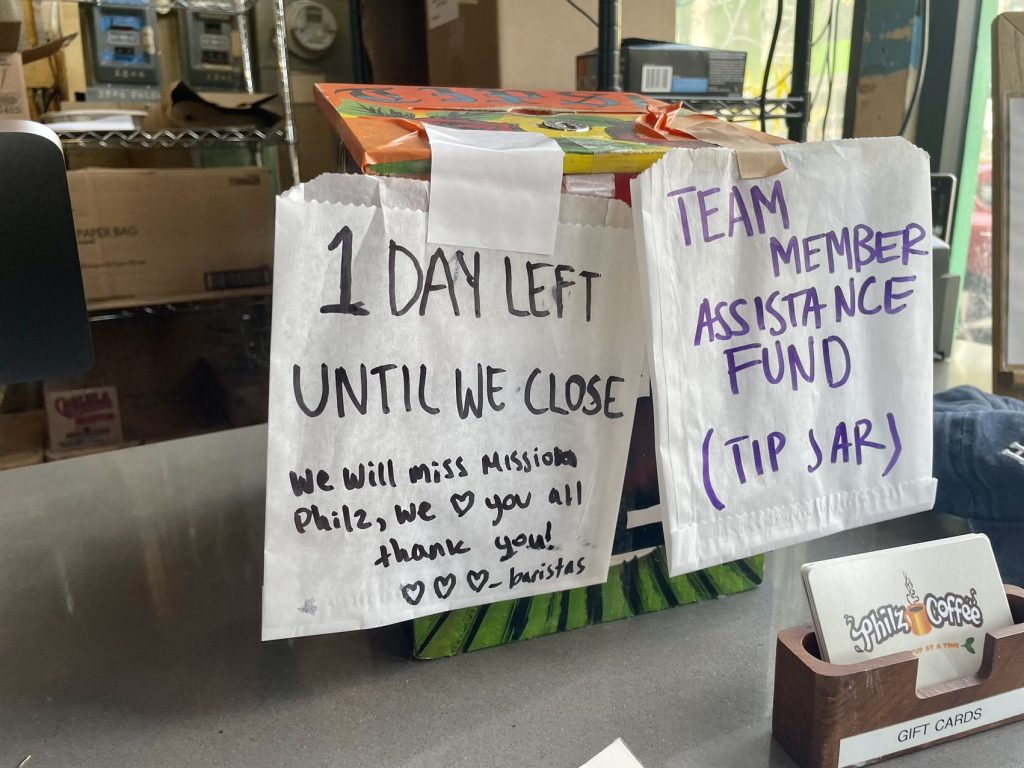 1 DAY LEFT
UNTIL WE CLOSE
We Will miss Mission
Philz, we ♡ you all
thank you!
♡♡♡-baristas
TEAM
MEMBER
ASSISTANCE
FUND
(TIP JAR)
Philz Coffee
UP AT A TIME
GIFT CARDS
PAPER BAG